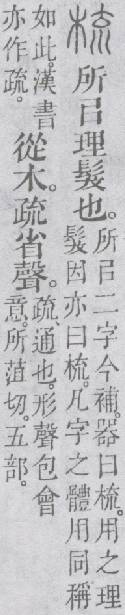 梳所㠯理髮也。所㠯二字今補。器曰梳。用之理
髮因亦曰梳。凡字之體用同稱
如此。漢書
亦作疏。從木。疏省聲。疏、通也。形聲包會
意。所菹切。五部。